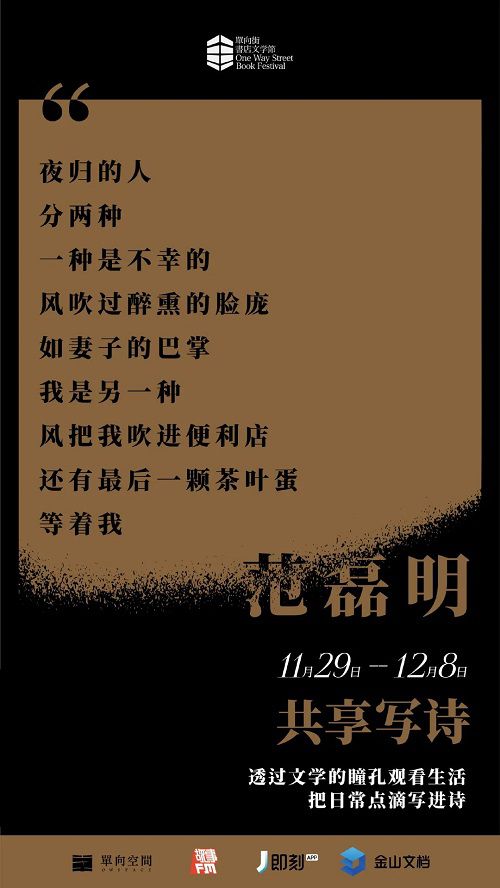 單向街
書店文学節
One Way Street
Book Festival
“
夜归的人
分两种
一种是不幸的
风吹过醉熏的脸庞
如妻子的巴掌
我是另一种
风把我吹进便利店
还有最后一颗茶叶蛋
等着我
范磊明
11月29日--12月8日
共享写诗
透过文学的瞳孔观看生活
把日常点滴写进诗
單向空間
OWSPACE
FM
即刻 APP
金山文档